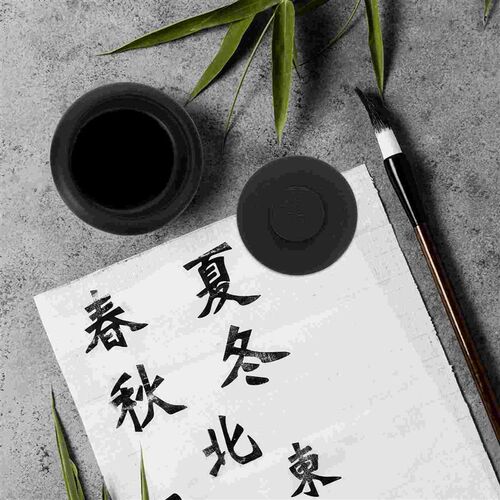 春夏
秋冬
北東